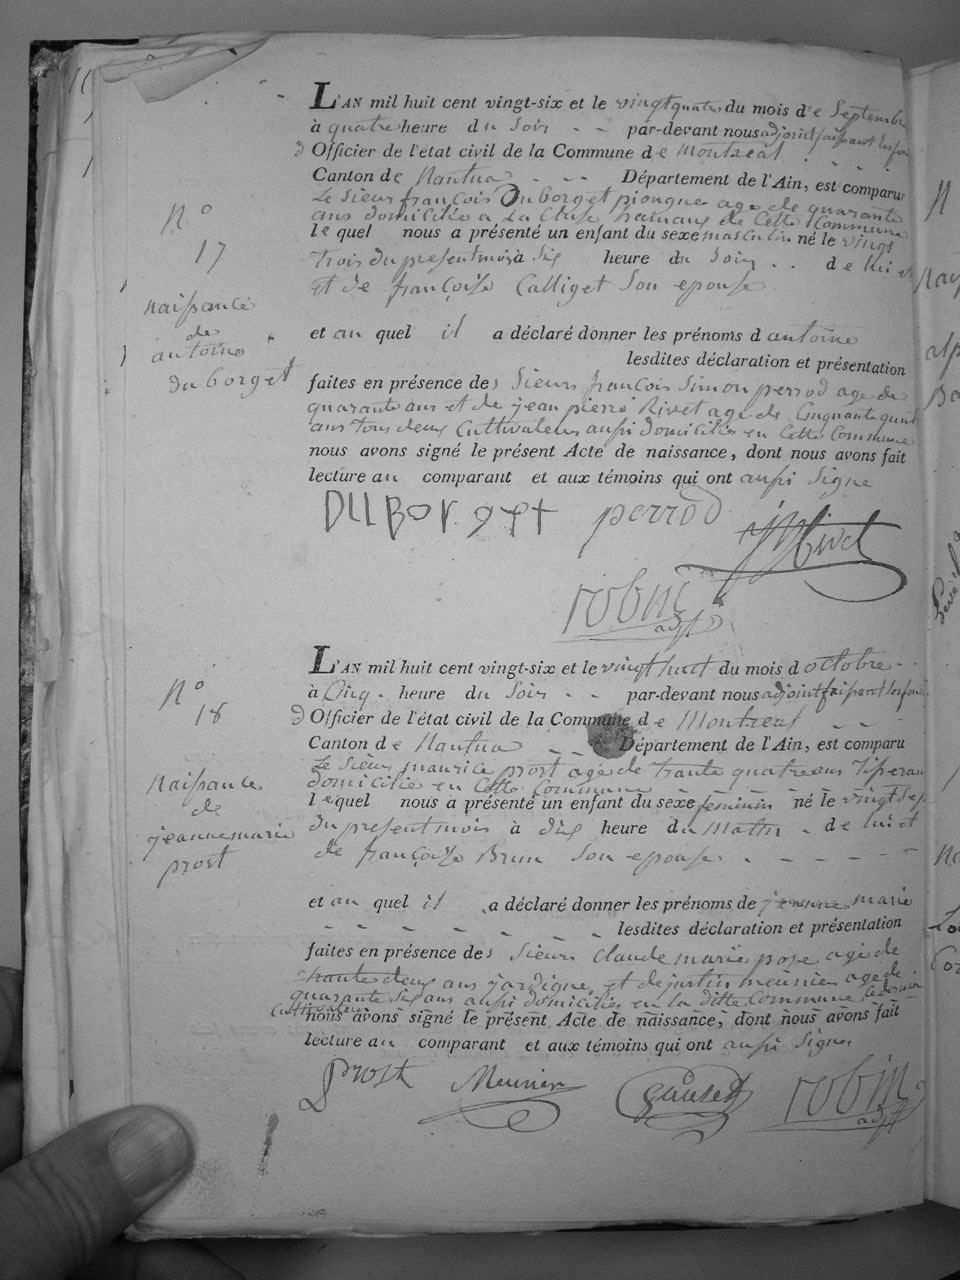 L'AN mil huit cent vingt-six et le vingt quatre du mois de Septembre
à quatre heure du Soir - - par-devant nous adjoint faisant les fon
Officier de l'état civil de la Commune de Montreal
Canton de Nantua - - - Département de l'Ain, est comparu
Le Sieur françois Duborget age de quarante
ans domicilié a La Cluse hameaux de Cette Commune
le quel nous a présenté un enfant du sexe masculin né le vingt
trois du present mois à Six heure du Soir . . de lui et
Et de françoise Calliget Son epouse
N°
17
naissance
de
antoine
du borget
et au quel il a déclaré donner les prénoms d antoine
lesdites déclaration et présentation
faites en présence des Sieurs françois Simon perrod age de
quarante ans et de jean pierre Rivet age de Cinquante
ans tous deux Cultivateurs aussi domiciliés en Cette Commune
nous avons signé le présent Acte de naissance, dont nous avons fait
lecture au comparant et aux témoins qui ont aussi Signe
DUBORgEt perrod JPRivet
robin
adjt
L'AN mil huit cent vingt-six et le vingt huit du mois d octobre - -
à Cinq - heure du Soir - - par-devant nous adjoint faisant les fon
Officier de l'état civil de la Commune de Montreal - - -
Canton de Nantua - - Département de l'Ain, est comparu
Le Sieur maurice prost age de trante quatre ans Tisserau
domicilié en Cette Commune
le quel nous a présenté un enfant du sexe feminin né le vingt Sep
du present mois à dix heure du Matin - de lui et
de françoise Brun Son epouse - - - - - -
N°
18
Naissance
de
jeanne marie
prost
et au quel il a déclaré donner les prénoms de jeanne marie
- - - - - - lesdites déclaration et présentation
faites en présence des Sieurs Claude marie age de
trante deux ans et de justin meunier age de
quarante Six ans aussi domiciliés en la ditte Commune
Cultivateur
nous avons signé le présent Acte de naissance, dont nous avons fait
lecture au comparant et aux témoins qui ont aussi Signe
Prost Meunier robin
adjt